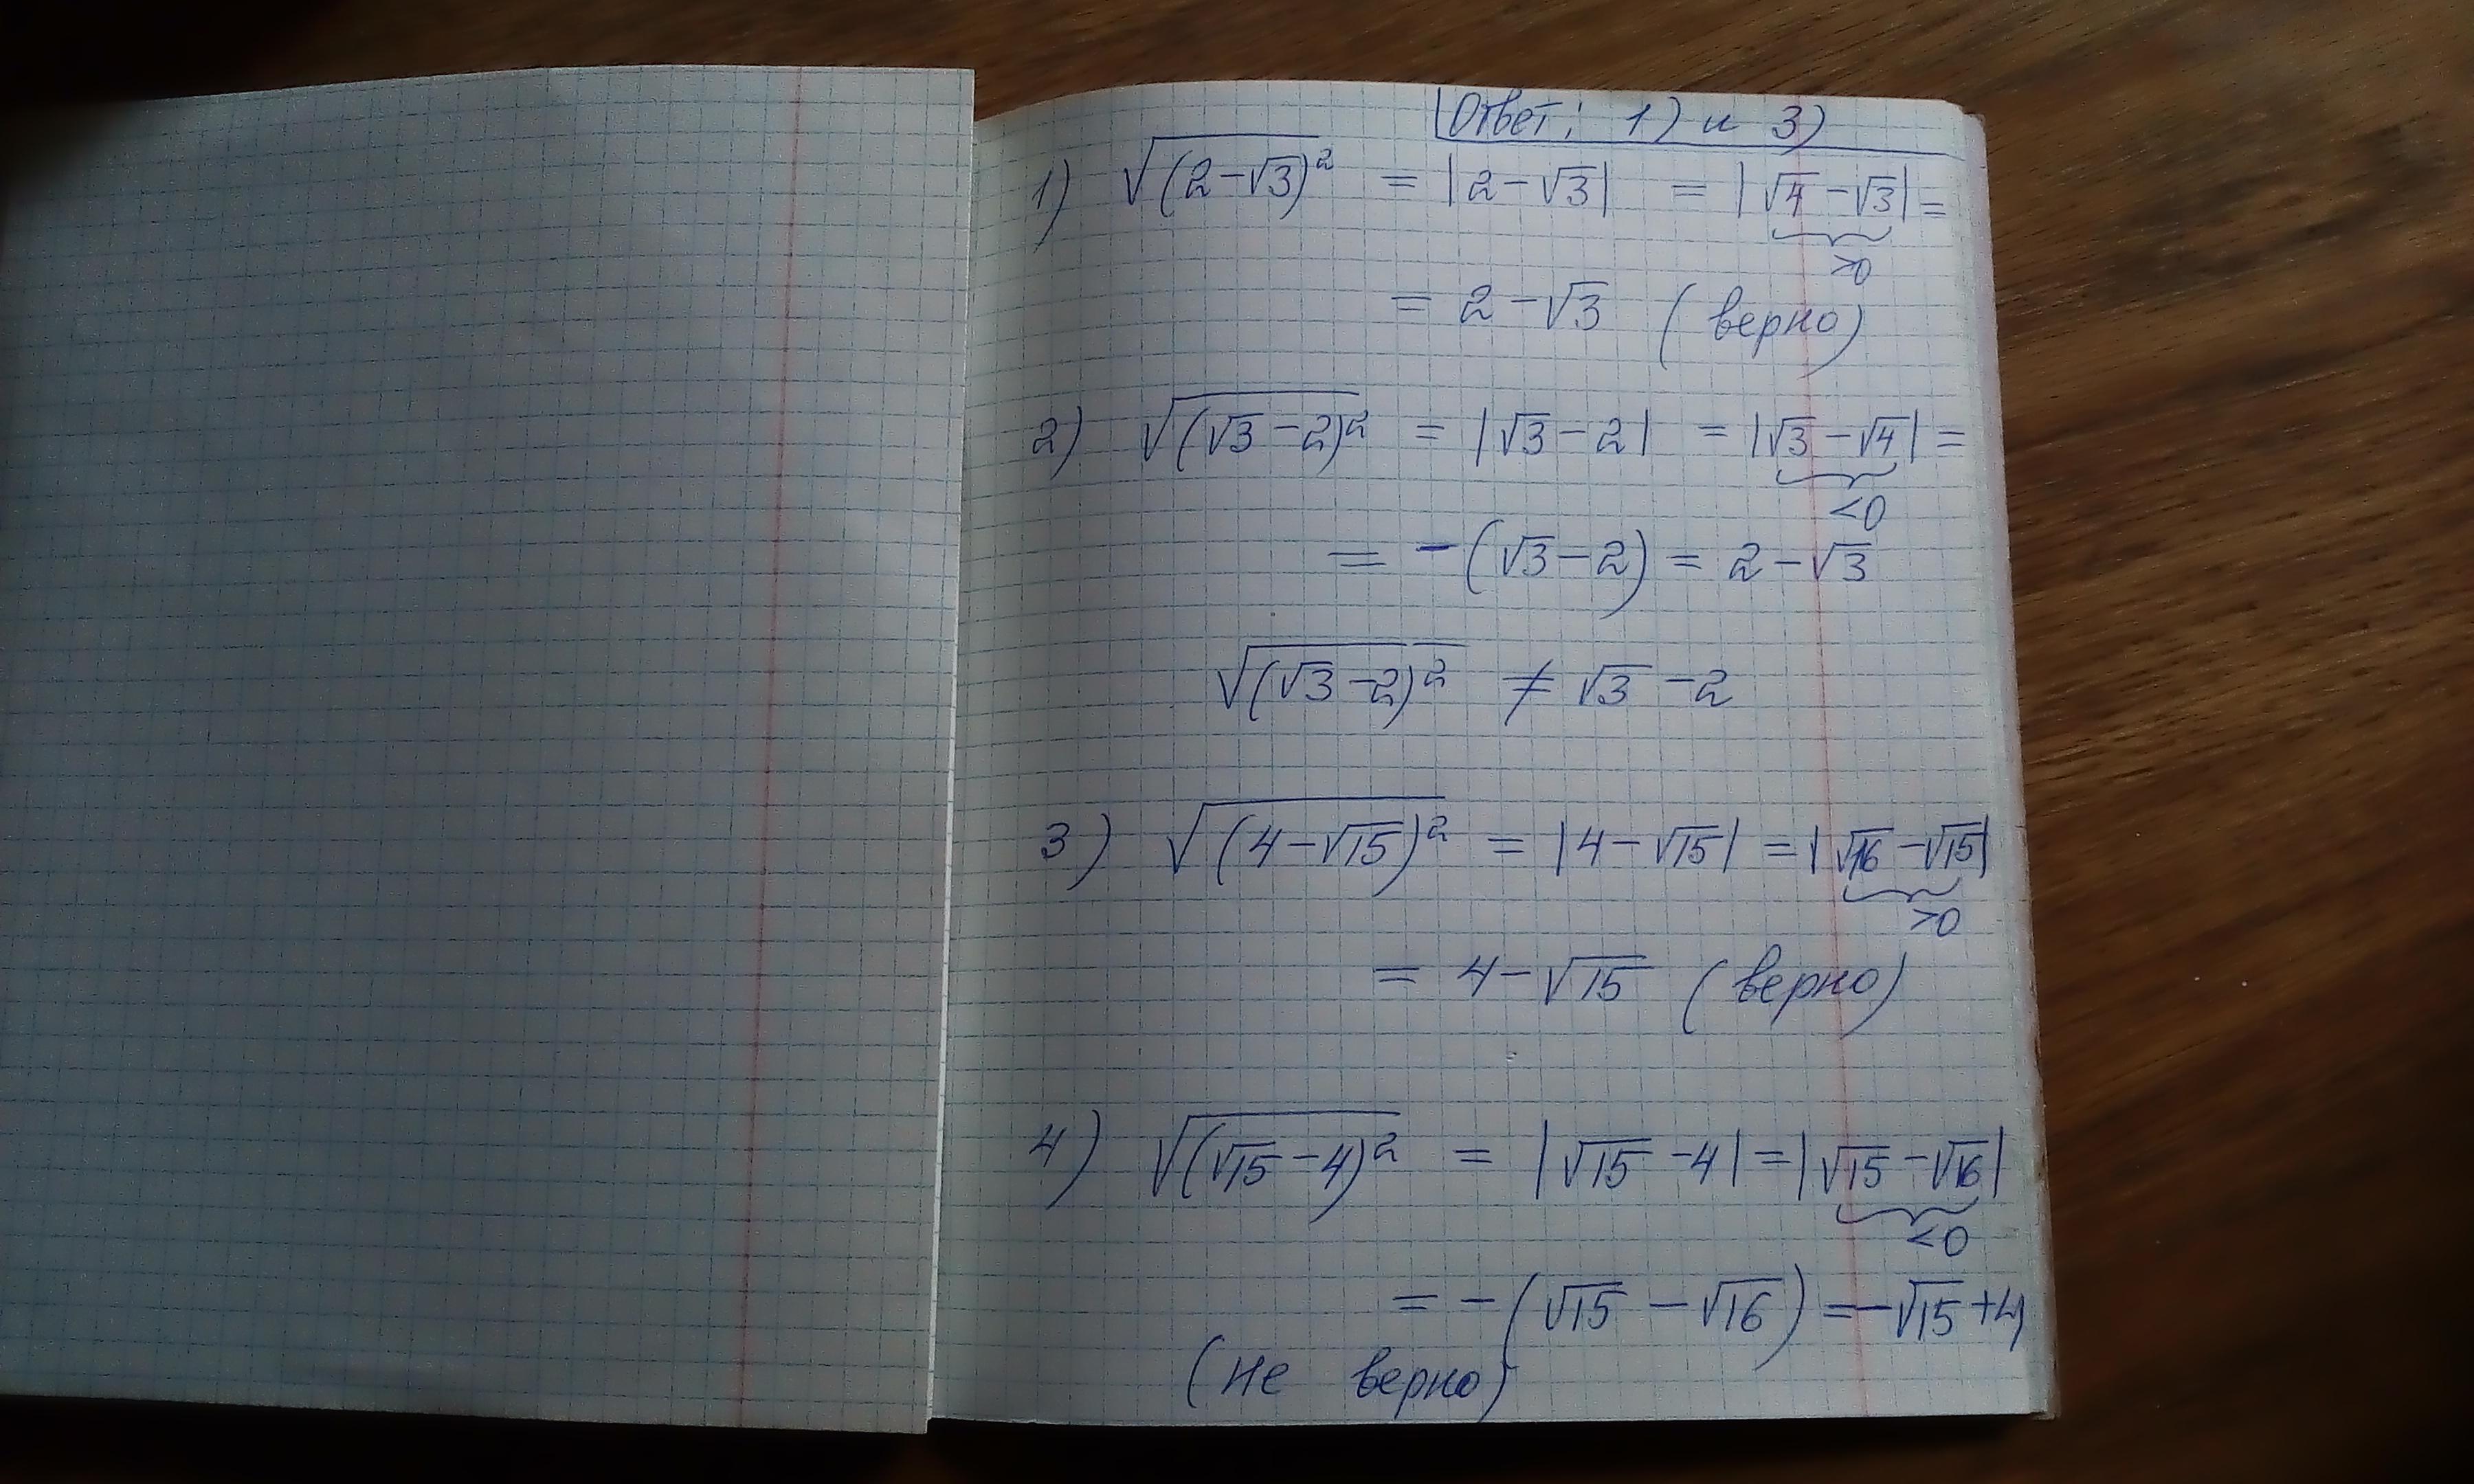 Ответ: 1) и 3)
1) √(2-√3)² = |2-√3| = |√4-√3| =
>0
= 2-√3 (верно)
2) √(√3-2)² = |√3-2| = |√3-√4| =
<0
= -(√3-2) = 2-√3
√(√3-2)² ≠ √3-2
3) √(4-√15)² = |4-√15| = |√16-√15|
>0
= 4-√15 (верно)
4) √(√15-4)² = |√15-4| = |√15-√16|
<0
= -(√15-√16) = -√15+4
(не верно)